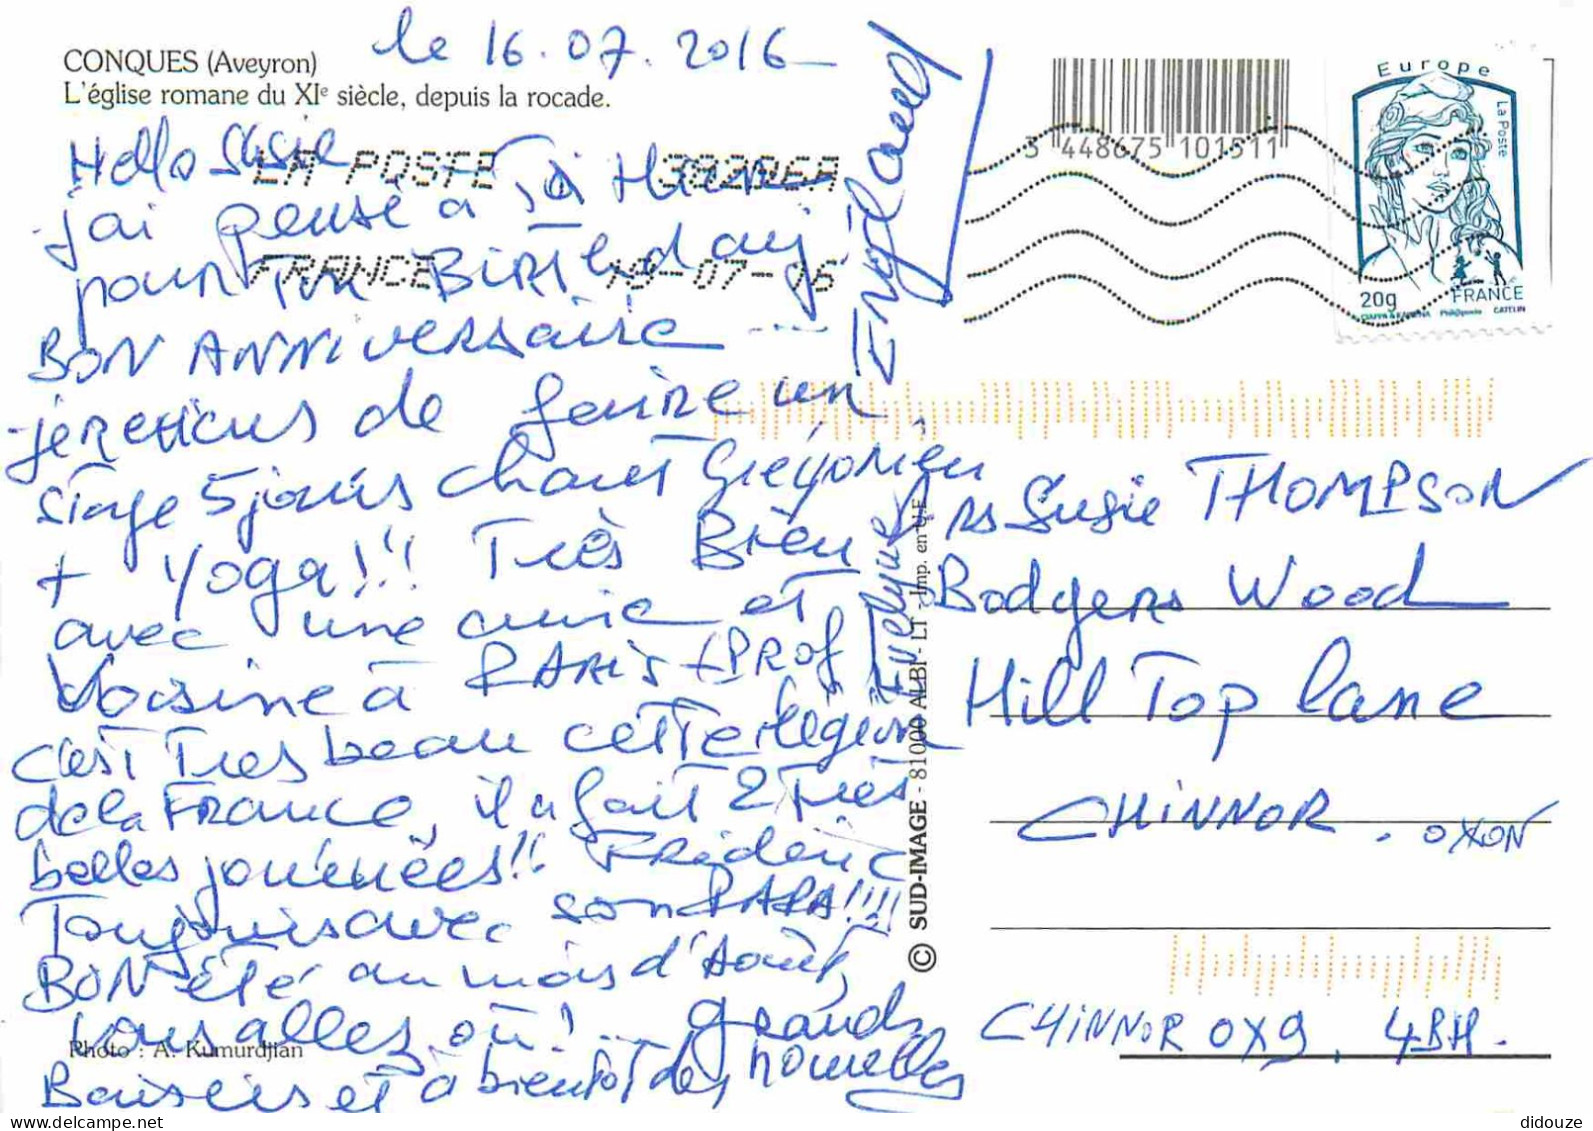 CONQUES (Aveyron)
L'église romane du XIe siècle, depuis la rocade.
le 16.07.2016
Hello Susie
j'ai pensé à toi
pour Ton BIRThday!
BON ANNiversaire ...
je reviens de faire un
stage 5 jours chant Grégorien
+ Yoga!!! Très Bien
avec une amie et
Voisine à PARis + PROf
c'est Très beau cette région
de la FRance, il a fait 2 très
belles journées!! FRédéric
Toujours avec son PAPA!!!!
BON été au mois d'Août,
vous allez où! .. grands
Baisers et à bientôt des nouvelles
Evelyne
England
LA POSTE
FRANCE
3 448675 101511
Europe
La Poste
20g
FRANCE
CIAPPA & KAWENA Phil@poste CATELIN
Mrs Susie THOMPSON
Bodgers Wood
Hill Top lane
CHiNNOR . OXON
CHiNNOR OX9. 4BH.
© SUD-IMAGE - 81000 ALBI - LT - Imp. en U.E.
Photo : A. Kumurdjian
didouze